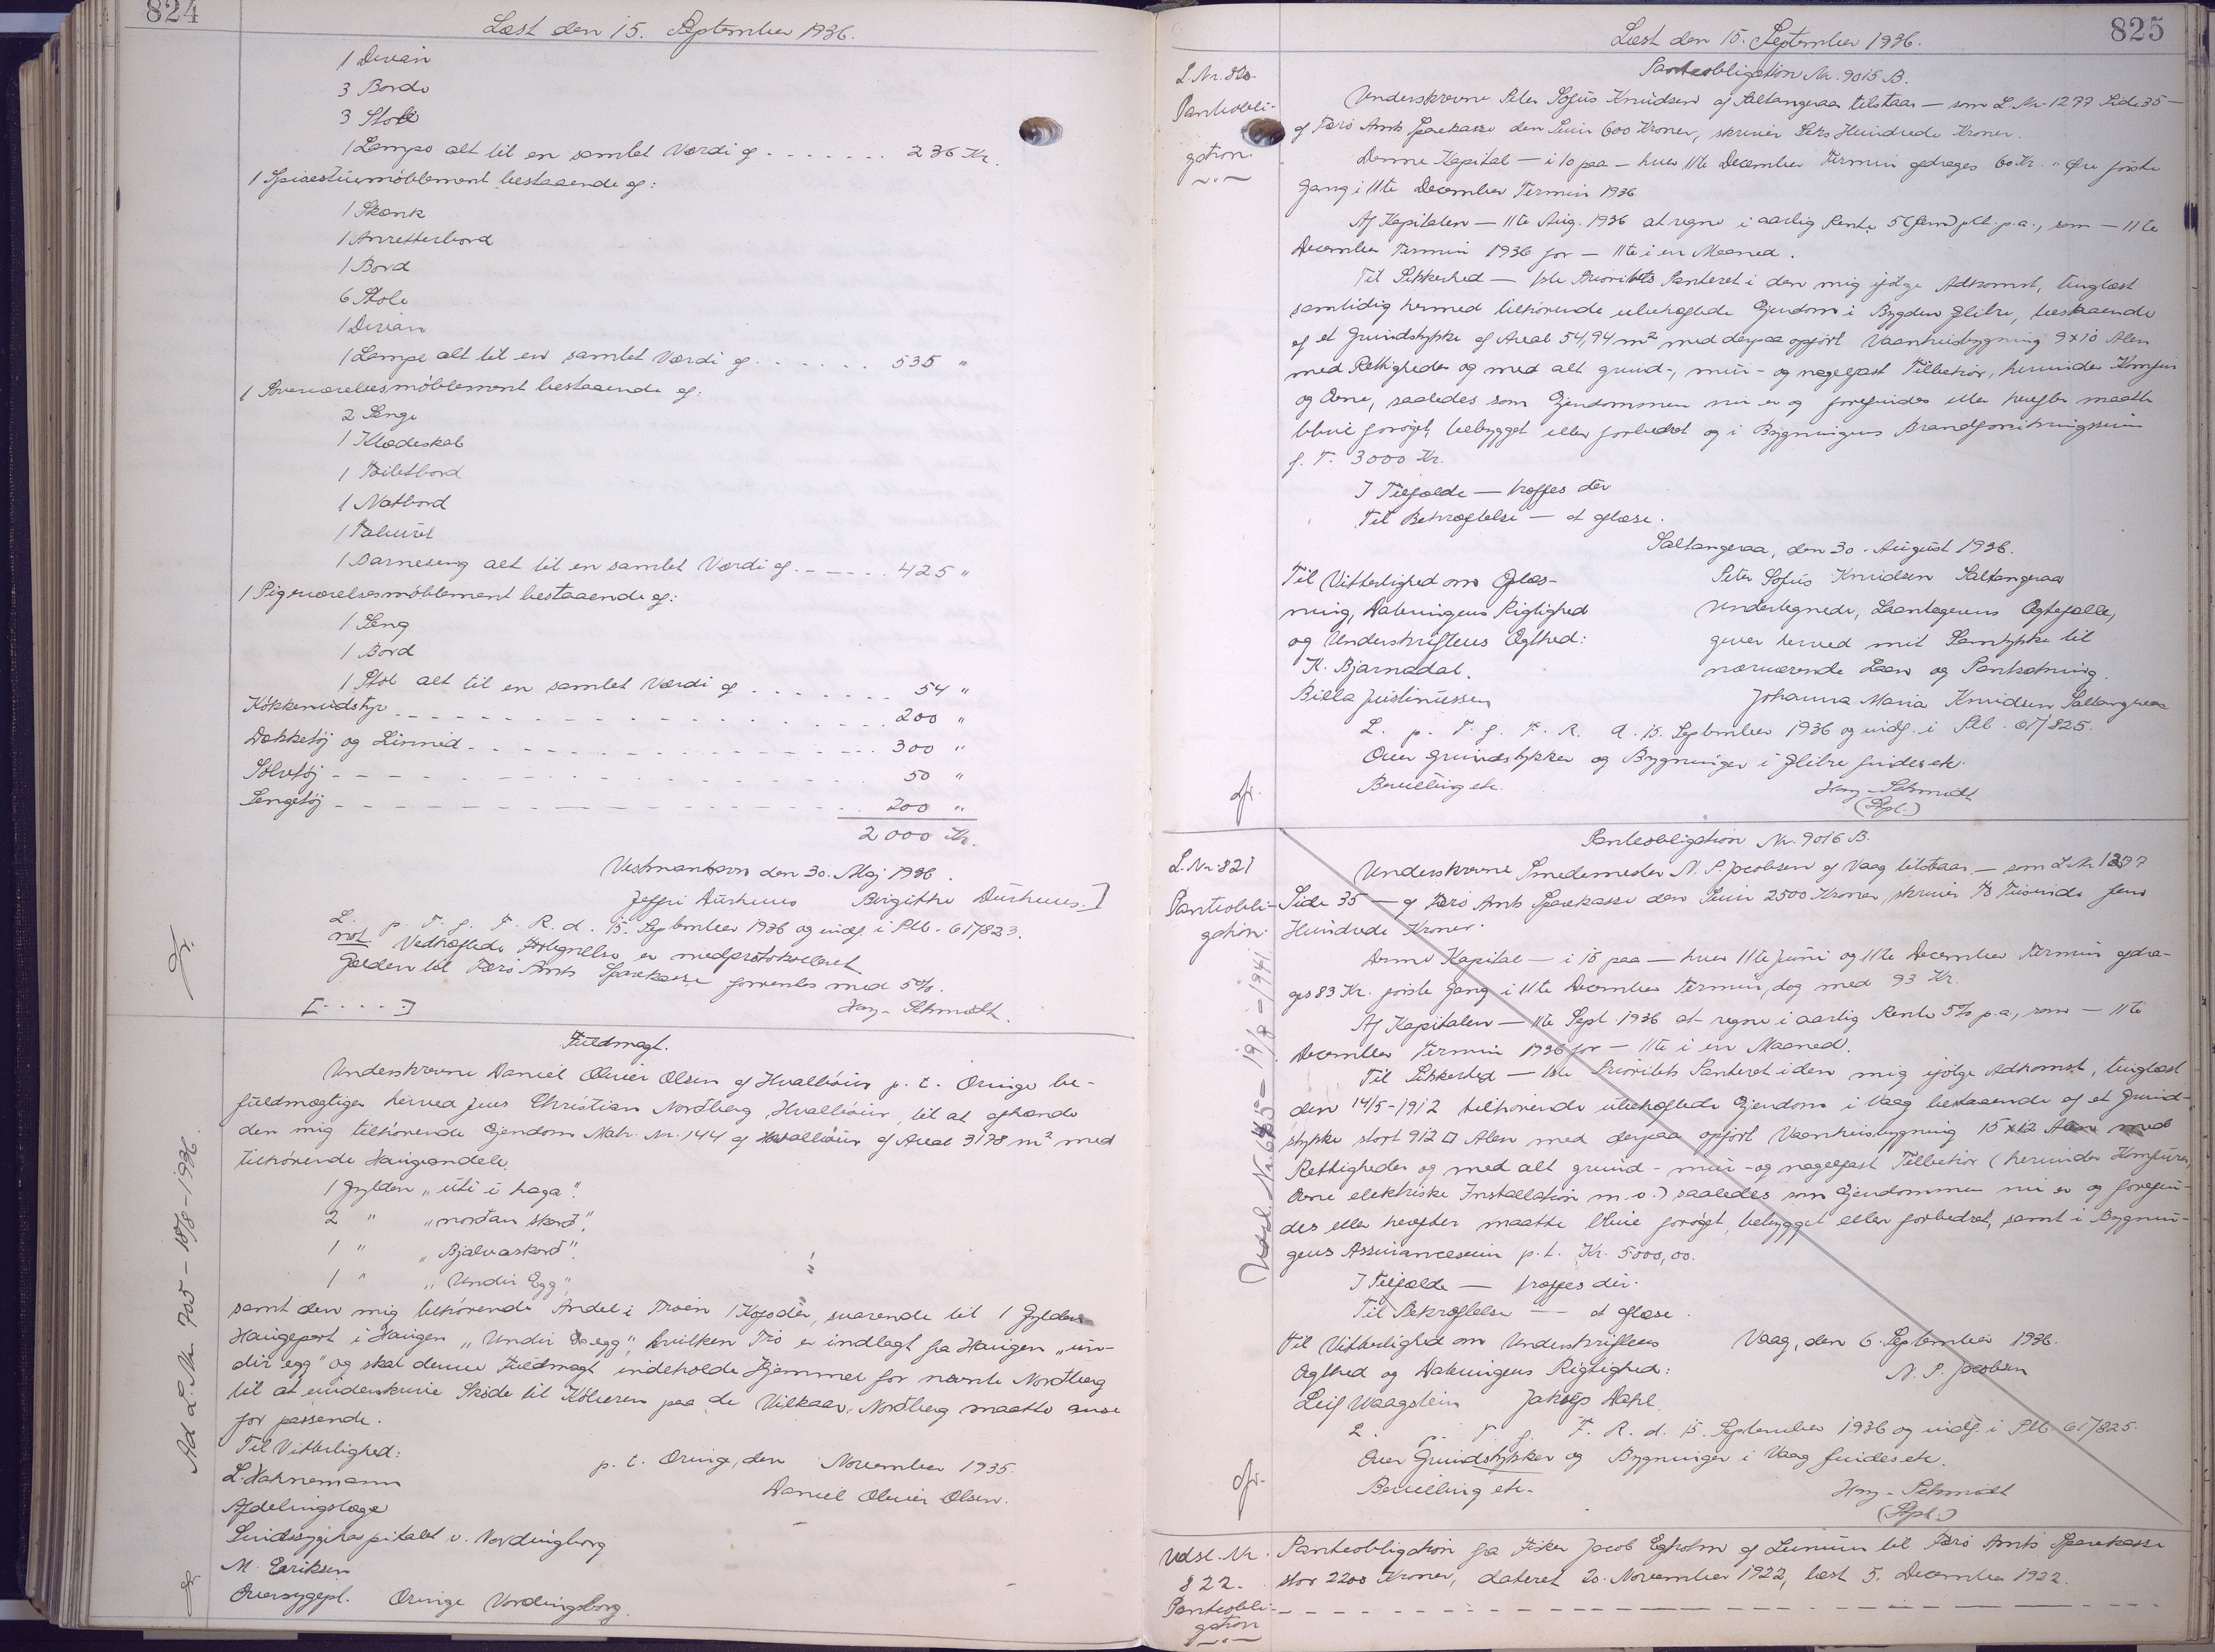 824
Læst den 15. September 1936.
1 Divan
3 Borde
3 Stole
1 Lampe alt til en samlet Værdi af . . . . . . . 236 Kr.
1 Spisestuemøblement bestaaende af:
1 Skænk
1 Anretterbord
1 Bord
6 Stole
1 Divan
1 Lampe alt til en samlet Værdi af . . . . . . 535 "
1 Soveværelsesmøblement bestaaende af:
2 Senge
1 Klædeskab
1 Toiletbord
1 Natbord
1 Taburet
1 Barneseng alt til en samlet Værdi af . - - - - . 425 "
1 Pigeværelsesmøblement bestaaende af:
1 Seng
1 Bord
1 Stol alt til en samlet Værdi af . . . . . . . 54 "
Køkkenudstyr 200 "
Dækketøj og Linned 300 "
Sølvtøj 50 "
Sengetøj 200 "
2000 Kr.
Vestmanhavn den 30. Maj 1936.
Jeffri Durhuus Birgitha Durhuus.]
L. p. T. f. F. R. d. 15. September 1936 og indf. i Plb. 61/823.
not. Vedhæftede Fortegnelse er medprotokolleret
Gælden til Færø Amts Sparekasse forrentes med 5%.
[. . . . .]
Hany-Schmidt.
jr.
Fuldmagt.
Ad L. Nr. 705 - 18/8-1936.
Underskrevne Daniel Olivier Olsen af Hvalbøur p. t. Oringe be-
fuldmægtiger herved Jens Christian Nordberg Hvalbøur, til at afhænde
den mig tilhørende Ejendom Matr. Nr. 144 af Hvalbøur af Areal 3178 m² med
tilhørende Haugeandele.
1 Gylden „uti i haga".
2 " „nordan skord".
1 " „Bjalvaskord".
1 " „Undir Egg",
samt den mig tilhørende Andel i Trøen i Kogsdèr, svarende til 1 Gylden
Haugepart i Haugen „Undir Egg", hvilken Trø er indlagt fra Haugen „un-
dir egg" og skal denne Fuldmagt indeholde Hjemmel for nævnte Nordberg
til at underskrive Skøde til Køberen paa de Vilkaar, Nordberg maatte anse
for passende.
Til Vitterlighed:
p. t. Oringe, den November 1935.
L. Hahnemann
Daniel Olivier Olsen.
Afdelingslæge
Sindssygehospitalet v. Vordingborg
M. Eriksen
Oversygepl. Oringe Vordingborg.
825
Læst den 15. September 1936.
L. Nr. 820.
Panteobli-
gation.
Panteobligation Nr. 9015 B.
Underskrevne Peter Sofus Knudsen af Saltangeraa tilstaar — som L. Nr. 1277 Side 35 —
af Færø Amts Sparekasse den Sum 600 Kroner, skriver Seks Hundrede Kroner.
Denne Kapital — i 10 paa — hver 11te December Termin afdrages 60 Kr. " Øre første
Gang i 11te December Termin 1936
Af Kapitalen — 11te Aug. 1936 at regne i aarlig Rente 5 (fem) pCt. p.a., som — 11te
December Termin 1936 for — 11te i en Maaned.
Til Sikkerhed — 1ste Prioritets Panteret i den mig ifølge Adkomst, tinglæst
samtidig hermed tilhørende ubehæftede Ejendom i Bygden Glibre, bestaaende
af et Grundstykke af Areal 54,94 m² med derpaa opført Vaanhusbygning 9 x 10 Alen
med Rettigheder og med alt grund-, mur- og nagelfast Tilbehør, herunder Komfur
og Ovne, saaledes som Ejendommen nu er og forefindes eller herefter maatte
blive forøget, bebygget eller forbedret og i Bygningens Brandforsikringssum
f. T. 3000 Kr.
I Tilfælde — træffes der
Til Bekræftelse — at aflæse.
Saltangeraa, den 30. August 1936.
Til Vitterlighed om Oplæs-
ning, Dateringens Rigtighed
og Underskriftens Ægthed:
K. Bjarnadal.
Billa Justinussen
Peter Sofus Knudsen Saltangeraa
Undertegnede, Laantagerens Ægtefælle,
giver herved mit Samtykke til
nærværende Laan og Pantsætning.
Johanna Maria Knudsen Saltangeraa
L. p. T. f. F. R. d. 15. September 1936 og indf. i Plb. 61/825.
Over Grundstykker og Bygninger i Glibre findes ek.
Bevilling etc.
Hany-Schmidt
(Stpl.)
jr.
Panteobligation Nr. 9016 B.
L. Nr. 821
Panteobli-
gation.
Underskrevne Smedemester N. P. Jacobsen af Vaag tilstaar — som L. Nr. 1277
Side 35 — af Færø Amts Sparekasse den Sum 2500 Kroner, skriver To Tusinde fem
Hundrede Kroner.
Denne Kapital — i 15 paa — hver 11te Juni og 11te December Termin afdra-
ges 83 Kr. første Gang i 11te December Termin, dog med 93 Kr.
Af Kapitalen — 11te Sept. 1936 at regne i aarlig Rente 5% p.a., som — 11te
December Termin 1936 for — 11te i en Maaned.
Til Sikkerhed — 1ste Prioritets Panteret i den mig ifølge Adkomst, tinglæst
den 14/5-1912 tilhørende ubehæftede Ejendom i Vaag bestaaende af et Grund-
stykke stort 912 □ Alen med derpaa opført Vaanhusbygning 15 x 12 Alen med
Rettigheder og med alt grund- mur- og nagelfast Tilbehør (herunder Komfurer,
Ovne elektriske Installation m. v.) saaledes som Ejendommen nu er og forefin-
des eller herefter maatte blive forøget, bebygget eller forbedret, samt i Bygnin-
gens Assurancesum p. t. Kr. 5000,00.
I Tilfælde — træffes der.
Til Bekræftelse — at aflæse.
Til Vitterlighed om Underskriftens
Ægthed og Dateringens Rigtighed:
Leif Waagstein Jákup Dahl.
Vaag, den 6. September 1936.
N. P. Jacobsen
L. p. T. f. F. R. d. 15. September 1936 og indf. i Plb. 61/825.
Over Grundstykker og Bygninger i Vaag findes ek.
Bevilling etc.
Hany-Schmidt
(Stpl.)
jr.
Udsl. Nr.
822.
Panteobli-
gation
Panteobligation fra Fisker Jacob Egholm af Lervig til Færø Amts Sparekasse
stor 2200 Kroner, dateret 20. November 1922, læst 5. December 1922.